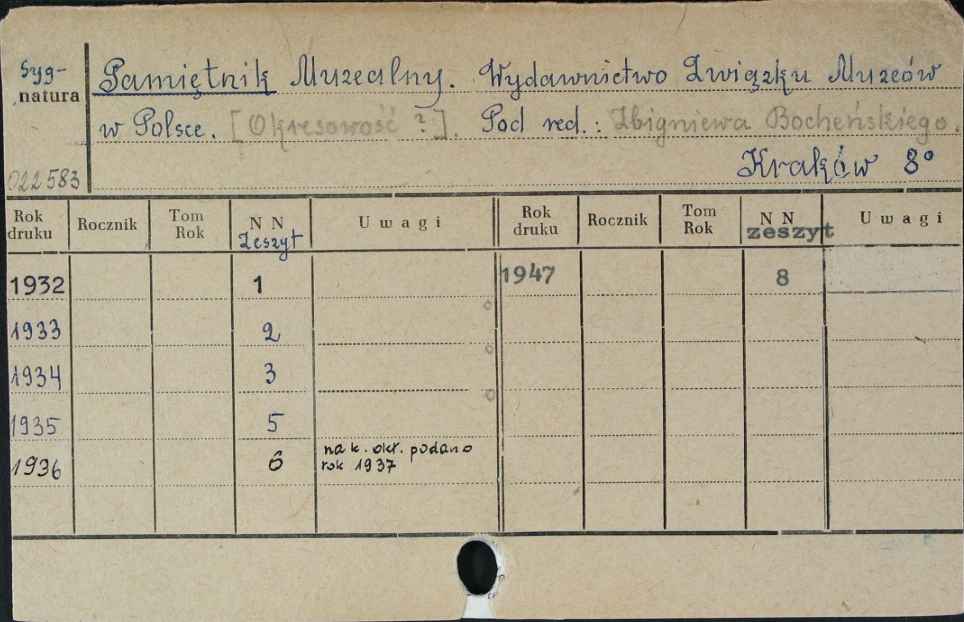 Syg-
natura
Pamiętnik Muzealny. Wydawnictwo Związku Muzeów
w Polsce. [Okresowość ?]. Pod red.: Zbigniewa Bocheńskiego.
Kraków 8°
022583
Rok druku Rocznik Tom Rok N N Zeszyt Uwagi Rok druku Rocznik Tom Rok N N zeszyt Uwagi
1932 1 1947 8
1933 2
1934 3
1935 5
1936 6 na k. okł. podano
rok 1937